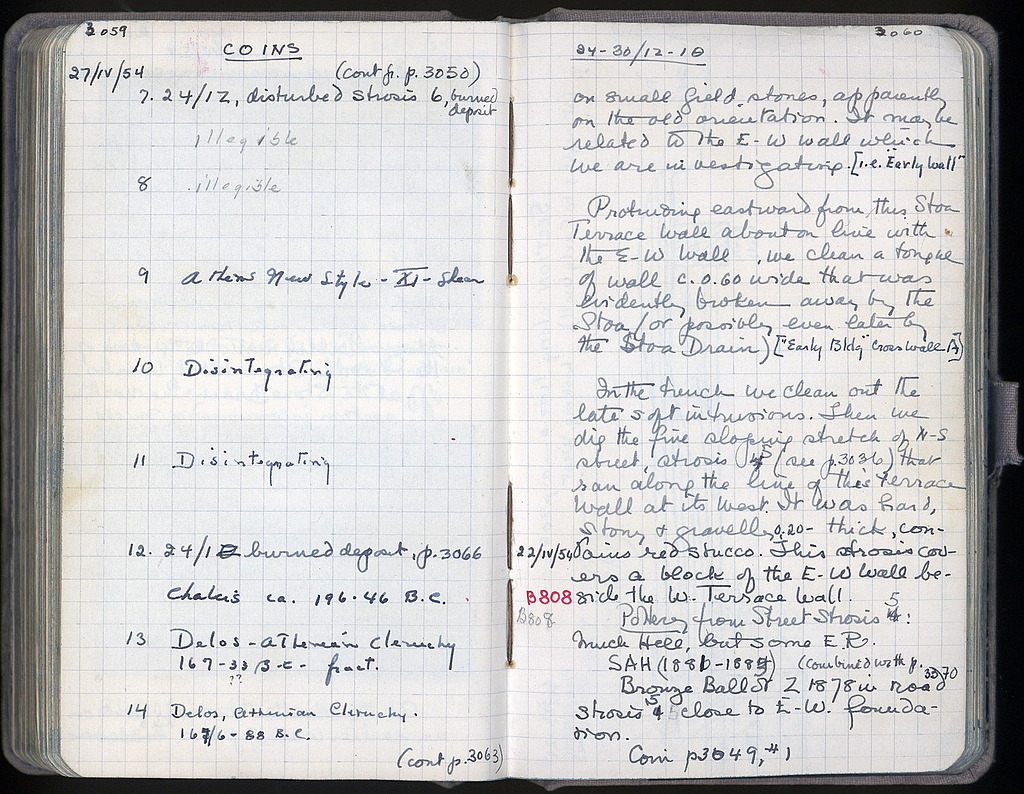 3059
COINS
27/IV/54
(cont fr. p. 3050)
7. 24/12, disturbed Strosis 6, burned deposit
illegible
8 illegible
9 Athens New Style - XI -
10 Disintegrating
11 Disintegrating
12. 24/1 burned deposit, p. 3066
Chalcis ca. 196-46 B.C.
13 Delos - Athenian Cleruchy
167-33 B.C. fract.
??
14 Delos, Athenian Cleruchy.
167/6 - 88 B.C.
(cont p. 3063)
3060
24-30/12-18
on small field stones, apparently
on the old orientation. It may be
related to the E-W wall which
we are investigating. [i.e. "Early Wall"
Protruding eastward from this Stoa
Terrace wall about on line with
the E-W wall, we clean a tongue
of wall c. 0.60 wide that was
evidently broken away by the
Stoa (or possibly even later by
the Stoa Drain) ["Early Bldg" Cross wall A]
In the trench we clean out the
late soft intrusions. Then we
dig the fine sloping stretch of N-S
street, strosis 5 (see p. 3036) that
ran along the line of this Terrace
Wall at its west. It was hard,
stony & gravelly, 0.20- thick, con-
22/IV/54 tains red stucco. This strosis cov-
ers a block of the E-W wall be-
B808 side the W. Terrace wall.
B808
Pottery from Street Strosis 5:
Much Hell, but some E.R.
SAH (1881-1885) (combined with p. 3370
Bronze Ball St Z 1878 in road
strosis 5 close to E-W. founda-
tion.
Coin p 3049, #1